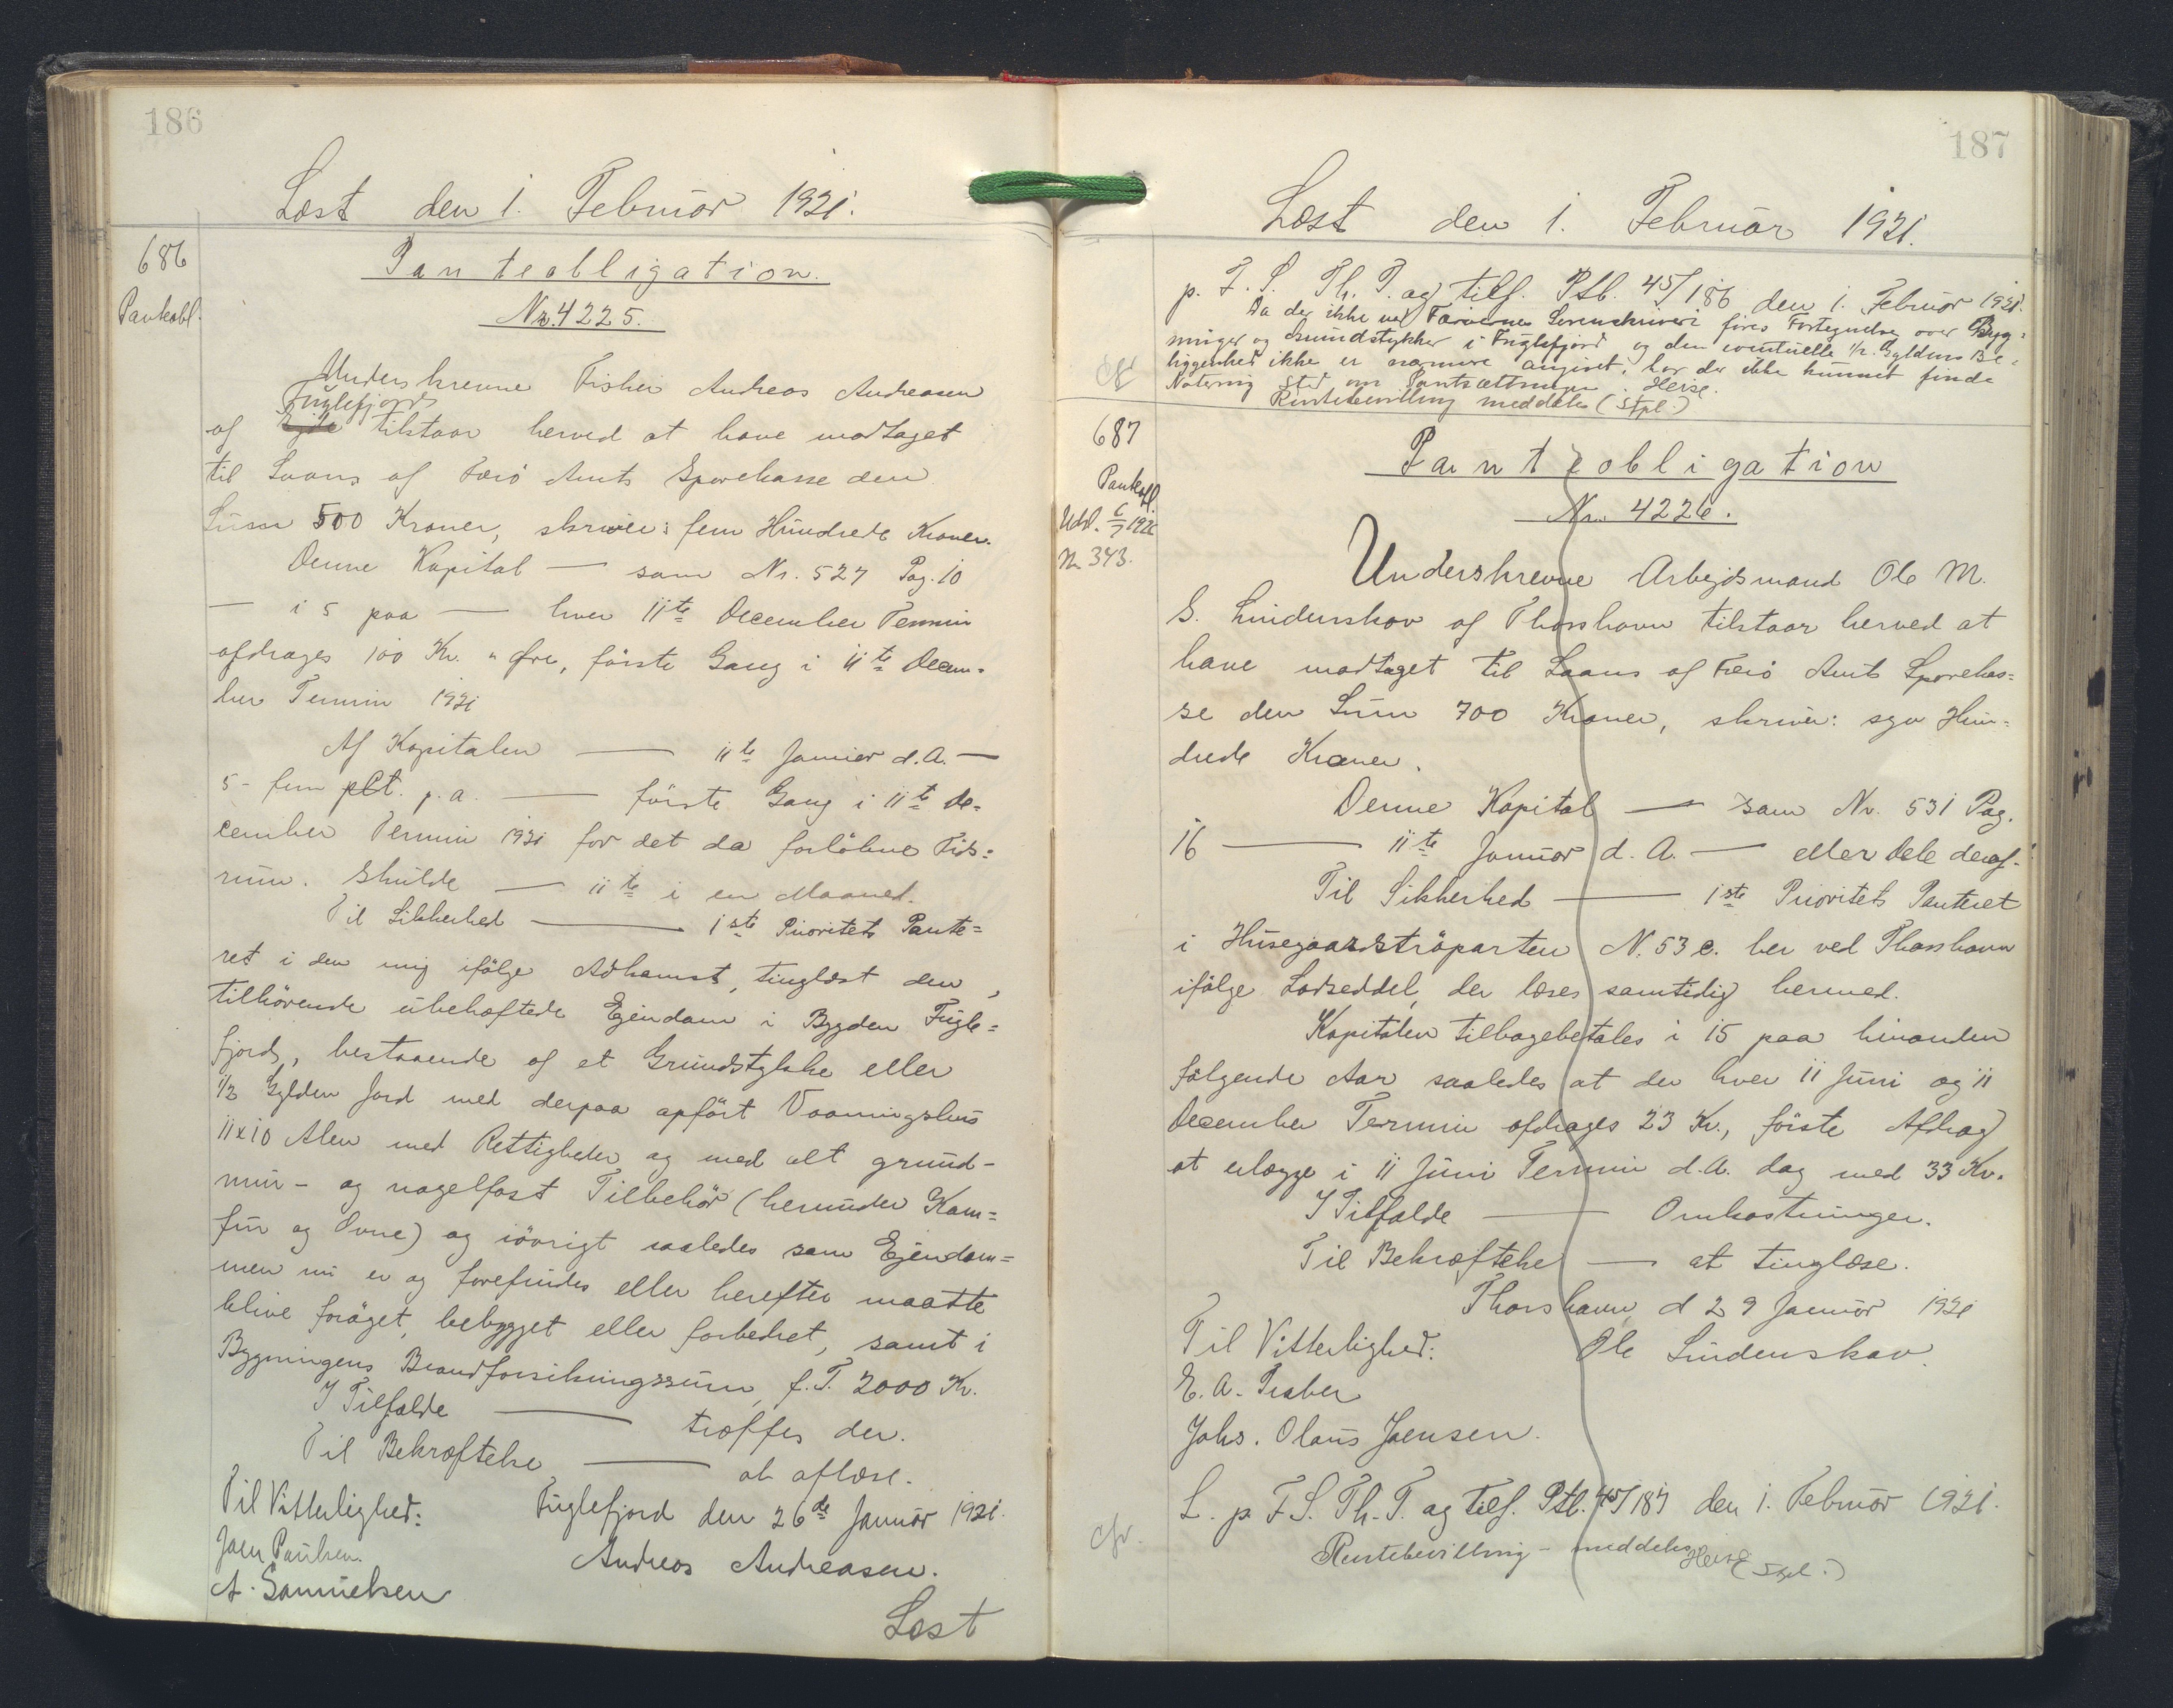 186
Læst den 1. Februar 1921.
686
Panteobl.
Panteobligation.
Nr. 4225.
Underskrevne Fisker Andreas Andreasen
Fuglefjord
af Ejde tilstaar herved at have modtaget
til Laans af Færø Amts Sparekasse den
Sum 500 Kroner, skriver: fem Hundrede Kroner.
Denne Kapital — som Nr. 527 Pag. 10
— i 5 paa — hver 11te December Termin
afdrages 100 Kr. " Øre, første Gang i 11te Decem-
ber Termin 1921
Af Kapitalen — 11te Januar d. A. —
5 - fem pCt. p. a. — første Gang i 11te De-
cember Termin 1921 for det da forløbne Tids-
rum. Skulde — 11te i en Maaned.
Til Sikkerhed — 1ste Prioritets Pante-
ret i den mig ifølge Adkomst, tinglæst den ,
tilhørende ubehæftede Ejendom i Bygden Fugle-
fjord, bestaaende af et Grundstykke eller
1/2 Gylden Jord med derpaa opført Vaaningshus
11x10 Alen med Rettigheder og med alt grund-
mur- og nagelfast Tilbehør (herunder Kom-
fur og Ovne) og iøvrigt saaledes som Ejendom-
men nu er og forefindes eller herefter maatte
blive forøget, bebygget eller forbedret, samt i
Bygningens Brandforsikringssum, f. T. 2000 Kr.
I Tilfælde — træffes der.
Til Bekræftelse — at aflæse.
Fuglefjord den 26de Januar 1921.
Til Vitterlighed: Andreas Andreasen.
Joen Poulsen.
A. Samuelsen
Læst
187
Læst den 1. Februar 1921.
p. F. S. Th. T. og tilf. Ptb. 45/186 den 1. Februar 1921.
Da der ikke ved Færøernes Sorenskriveri føres Fortegnelse over Byg-
ninger og Grundstykker i Fuglefjord og den eventuelle 1/2 Gyldens Be-
liggenhed ikke er nærmere angivet, har der ikke kunnet finde
Notering Sted om Pantsættningen. Heise.
Rentebevilling meddeles (Stpl.)
cfr
687
Panteobl.
Udsl. 6/7 1926
Nr. 343.
Panteobligation
Nr. 4226.
Underskrevne Arbejdsmand Ole M.
S. Lindenskov af Thorshavn tilstaar herved at
have modtaget til Laans af Færø Amts Sparekas-
se den Sum 700 Kroner, skriver: syv Hun-
drede Kroner.
Denne Kapital — som Nr. 531 Pag.
16 — 11te Januar d. A. — eller Dele deraf.
Til Sikkerhed — 1ste Prioritets Panteret
i Husegaardstrøparten N. 53 c. her ved Thorshavn
ifølge Lodseddel, der læses samtidig hermed.
Kapitalen tilbagebetales i 15 paa hinanden
følgende Aar saaledes at der hver 11 Juni og 11
December Termin afdrages 23 Kr., første Afdrag
at erlægge i 11 Juni Termin d. A. dog med 33 Kr.
I Tilfælde — Omkostninger.
Til Bekræftelse — at tinglæse.
Thorshavn, d 29 Januar 1921
Til Vitterlighed: Ole Lindenskov.
E. A.
Johs. Olaus Joensen.
L. p. F. S. Th. T. og tilf. Ptb. 45/187 den 1. Februar 1921.
Rentebevilling - meddeles Heise (Stpl.)
cfr.